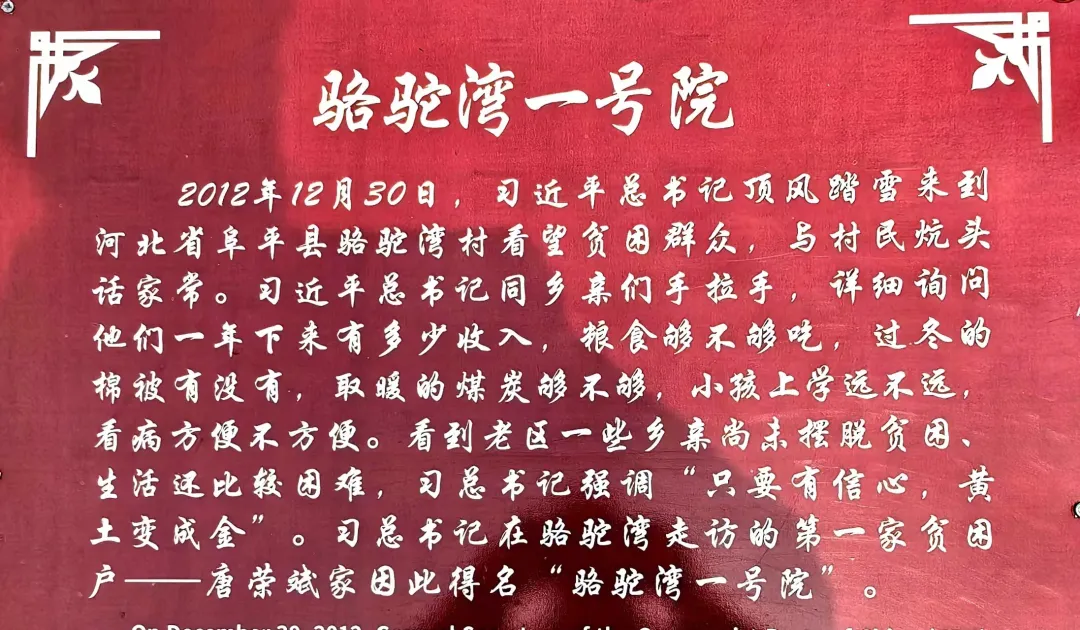 骆驼湾一号院
2012年12月30日，习近平总书记顶风踏雪来到
河北省阜平县骆驼湾村看望贫困群众，与村民炕头
话家常。习近平总书记同乡亲们手拉手，详细询问
他们一年下来有多少收入，粮食够不够吃，过冬的
棉被有没有，取暖的煤炭够不够，小孩上学远不远，
看病方便不方便。看到老区一些乡亲尚未摆脱贫困、
生活还比较困难，习总书记强调“只要有信心，黄
土变成金”。习总书记在骆驼湾走访的第一家贫困
户——唐荣斌家因此得名“骆驼湾一号院”。